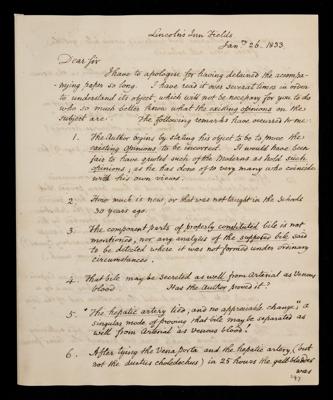 Lincoln's Inn Fields
Jany 26. 1833
Dear Sir
I have to apologise for having detained the accompa-
nying paper so long. I have read it over several times in order
to understand its object, which will not be necessary for you to do
who so much better know what the existing opinions on the
subject are. The following remarks have occurred to me.
1. The Author begins by stating his object to be to prove the
existing opinions, to be incorrect. It would have been
fair to have quoted such of the Moderns as hold such
opinions, as he has done of so very many who coincide
with his own views.
2. How much is new, or that was not taught in the Schools
30 years ago.
3. The component parts of properly constituted bile is not
mentioned, nor any analysis of the supposed bile said
to be detected where it was not formed under ordinary
circumstances.
4. That bile may be secreted as well from Arterial as Venous
blood Has the Author proved it?
5. "The hepatic artery tied, and no appreciable change", a
singular mode of proving that bile may be separated as
well from Arterial as venous blood!
6. After tying the Vena porta and the hepatic artery (but
not the ductus choledochus) in 25 hours the gall bladder
was